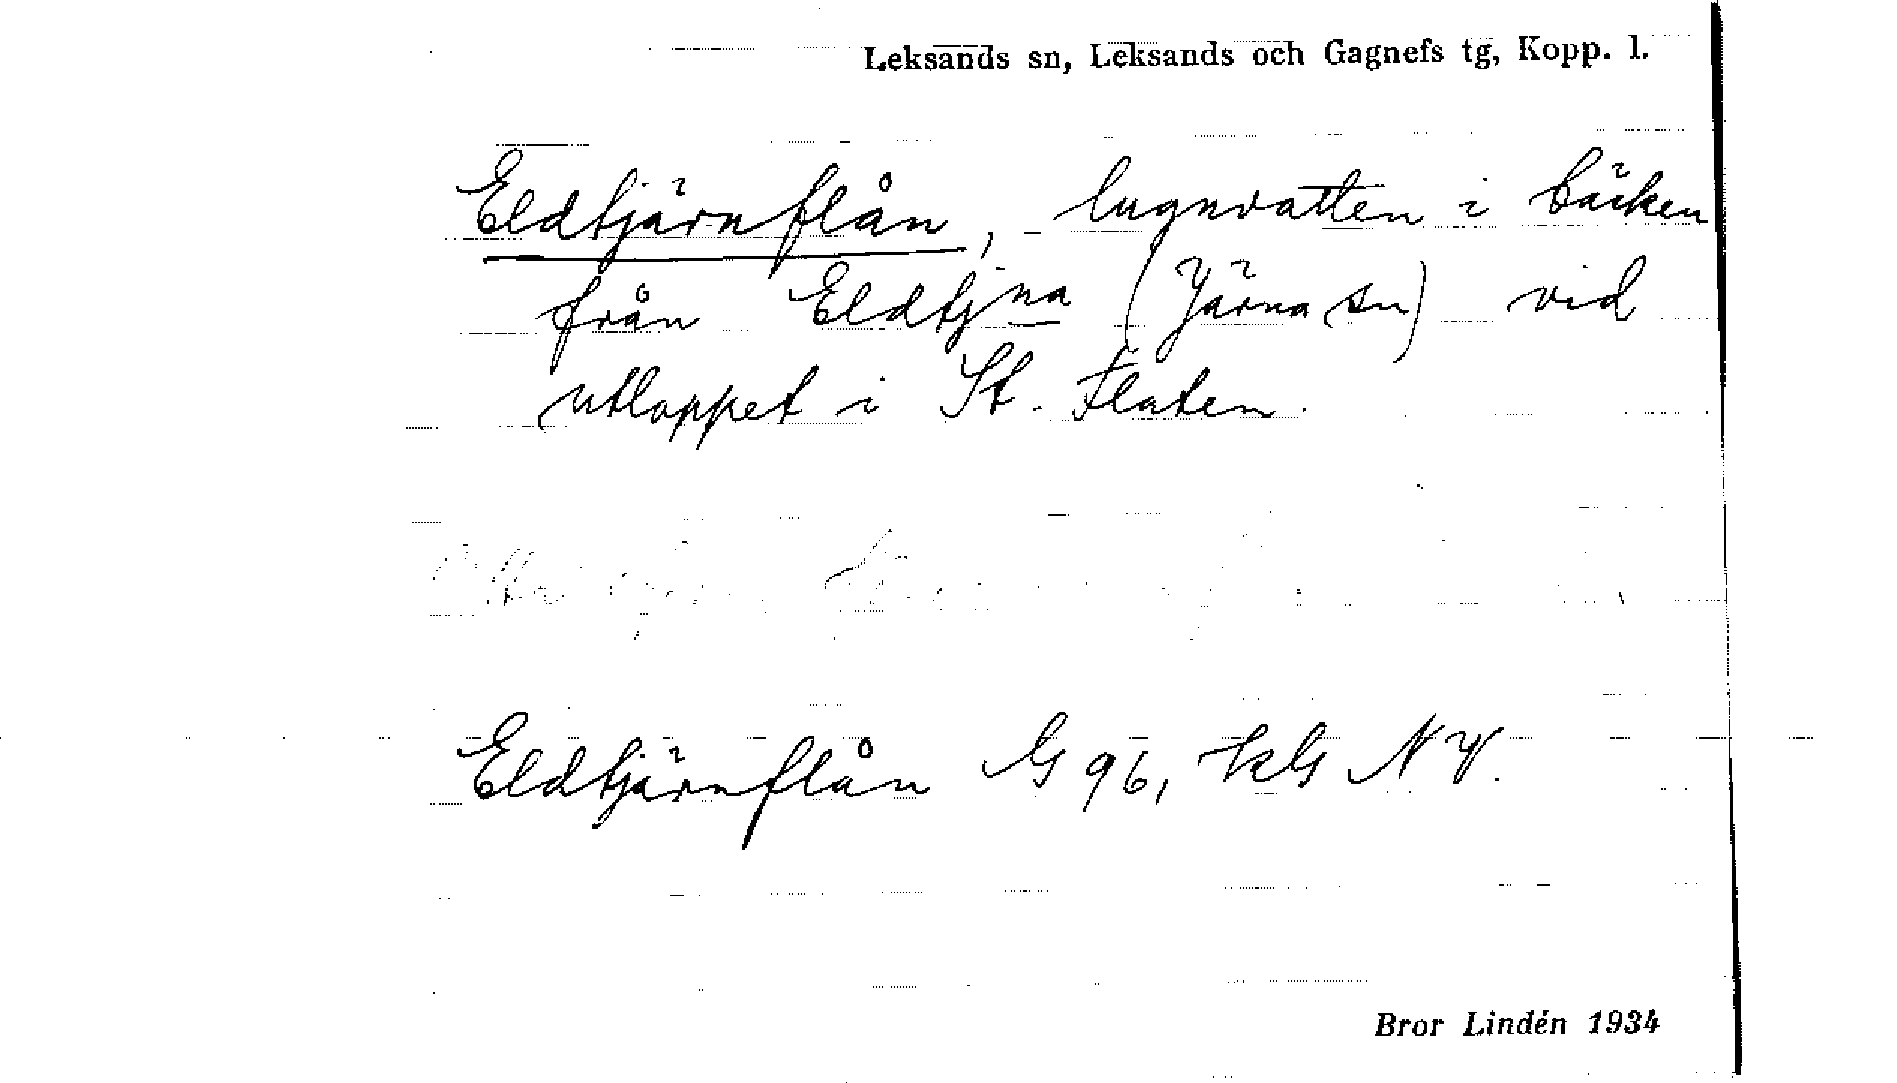 Leksands sn, Leksands och Gagnefs tg, Kopp. l.
Eldtjärnflån, lugnvatten i bäcken
från Eldtjna (Järna sn) vid
utloppet i St. Flaten.
Eldtjärnflån G 96, kbl NV.
Bror Lindén 1934